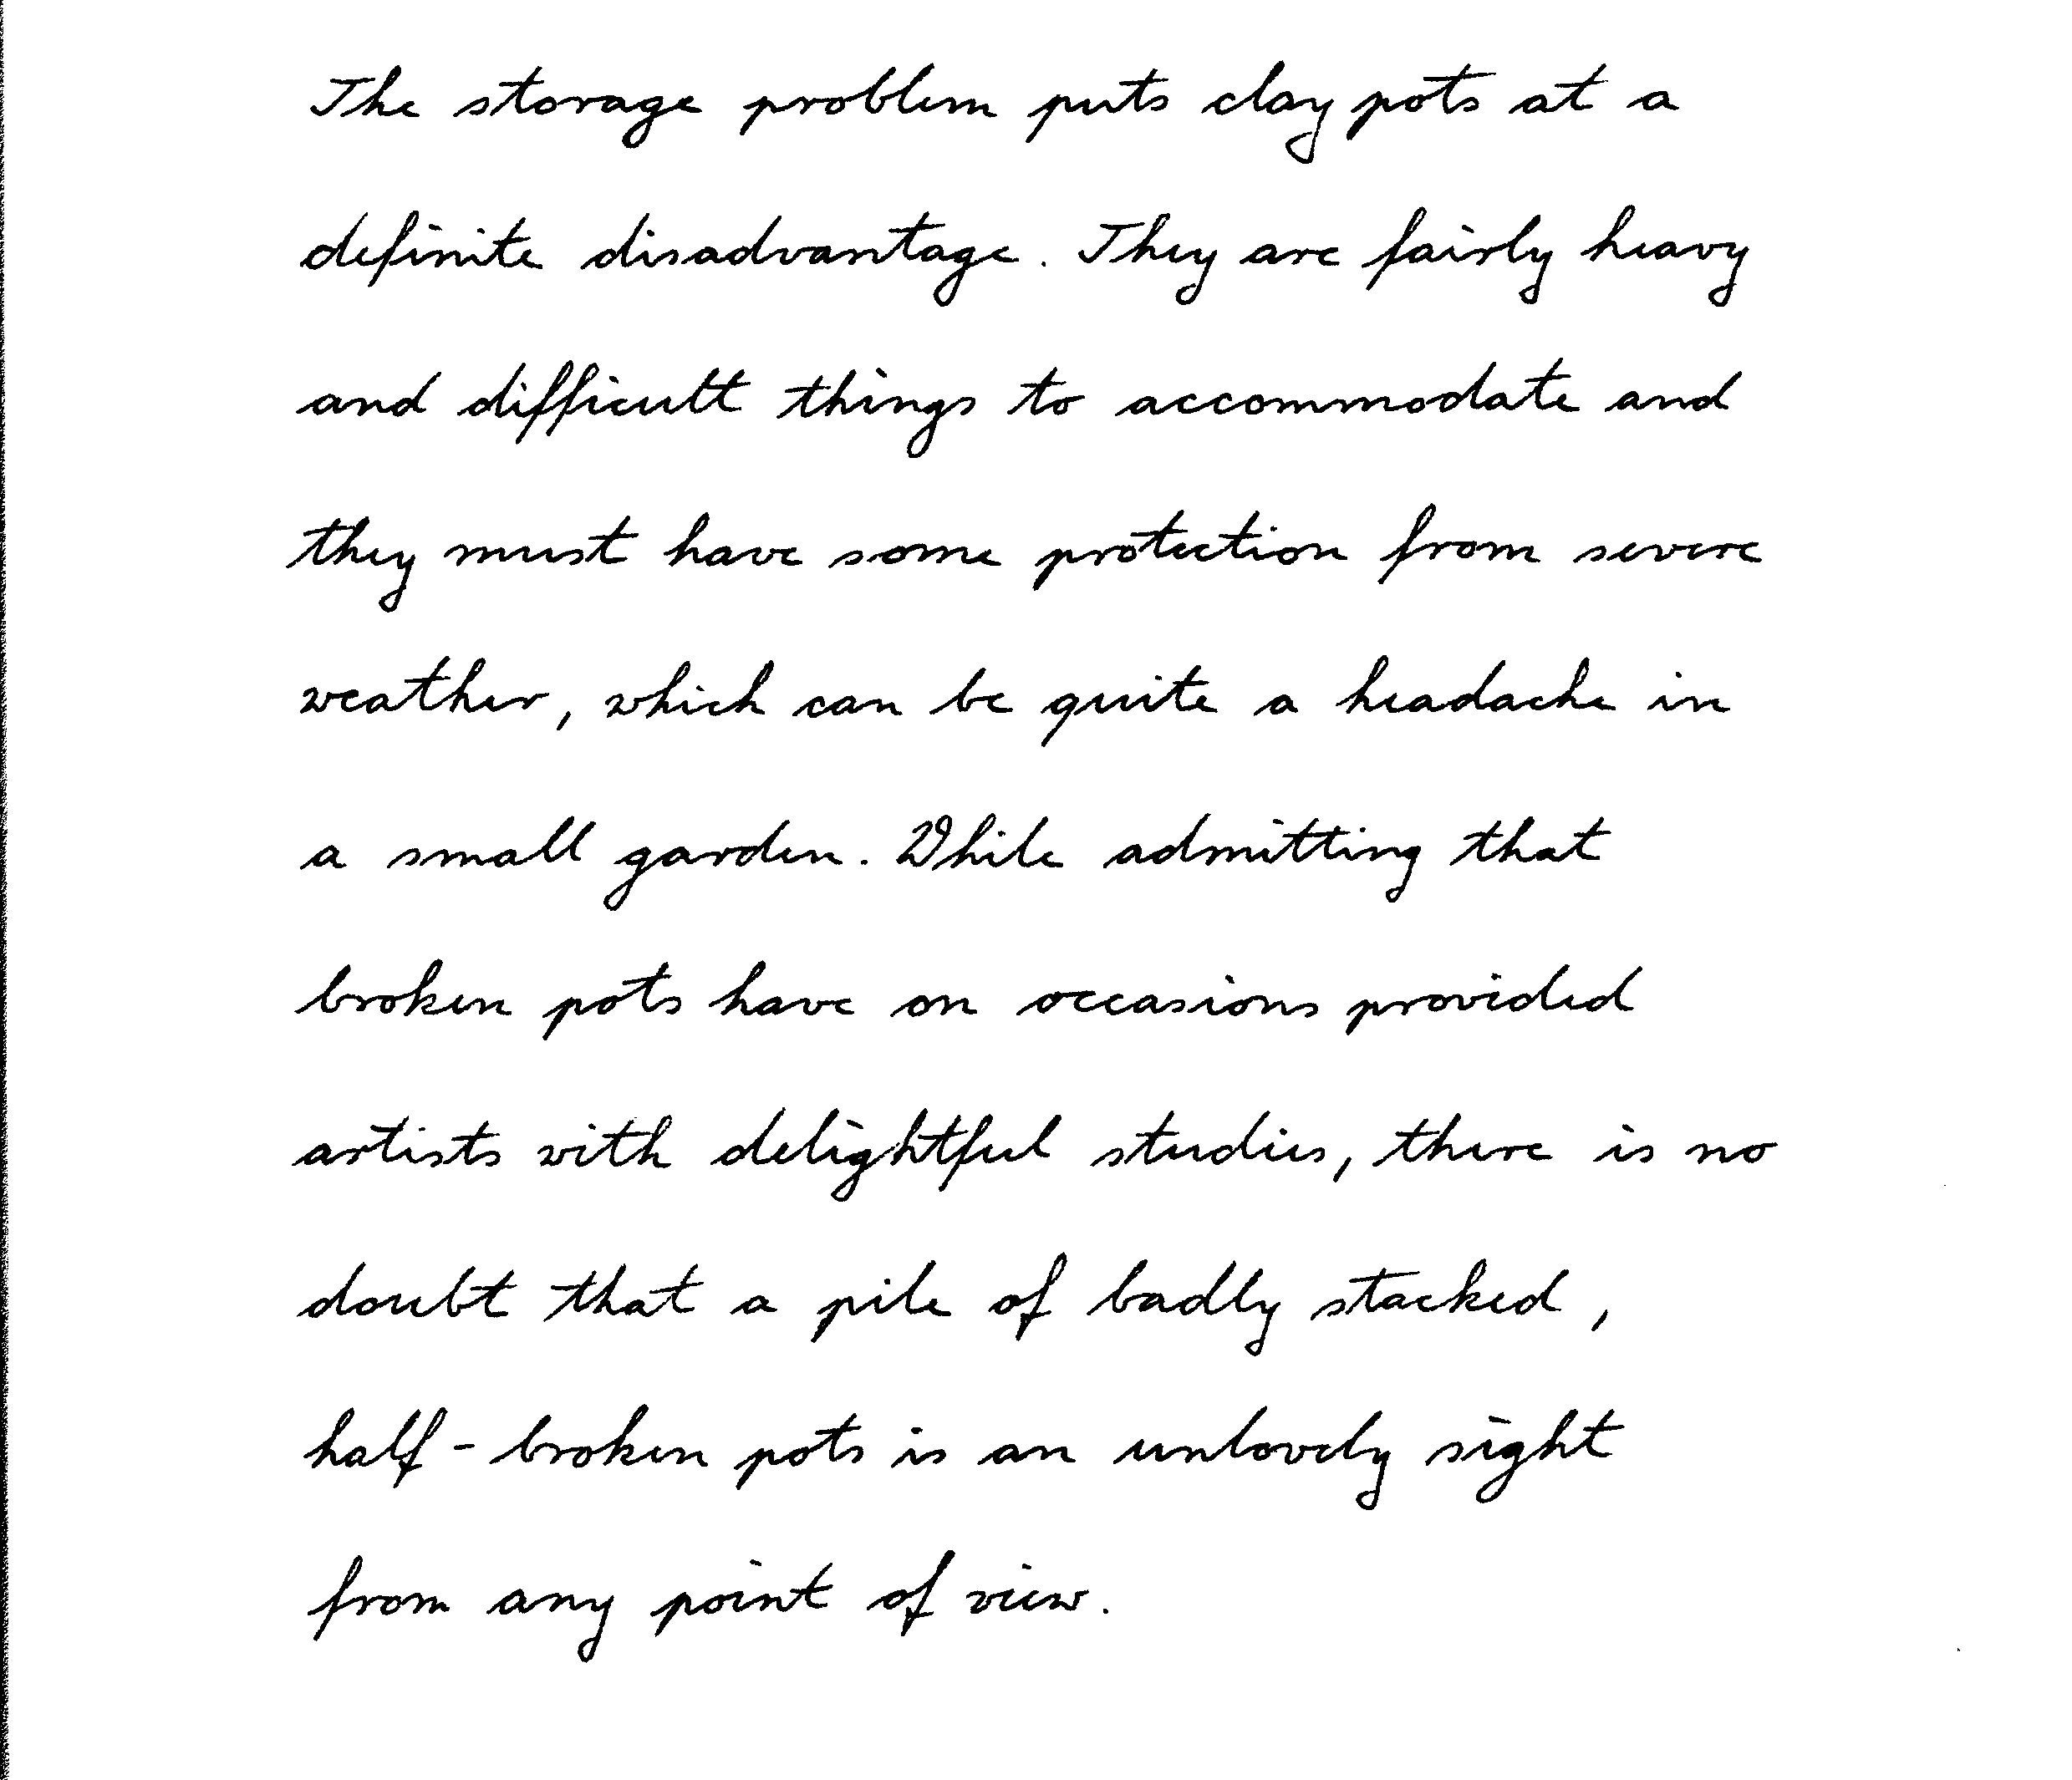 The storage problem puts clay pots at a
definite disadvantage. They are fairly heavy
and difficult things to accommodate and
they must have some protection from severe
weather, which can be quite a headache in
a small garden. While admitting that
broken pots have on occasions provided
artists with delightful studies, there is no
doubt that a pile of badly stacked,
half-broken pots is an unlovely sight
from any point of view.